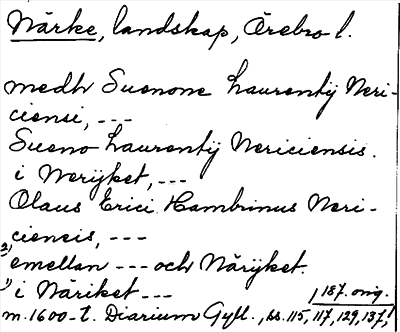 Närke, landskap, Örebro l.
medh Suenone Laurentij Neri-
ciensi, ---
Sueno Laurentij Nericiensis.
i Nerijket, ---
Olaus Erici Hambrinus Neri-
ciensis, ---
2) emellan --- och Närijket.
1) i Näriket ---
1 187. orig.
m. 1600-t. Diarium Gyll., ss. 115, 117, 129, 137,